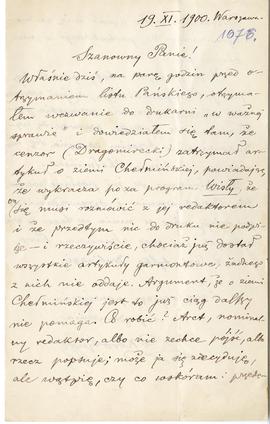 19. XI. 1900. Warszawa.
1078.
Szanowny Panie!
Właśnie dziś, na parę godzin przed o-
trzymaniem listu Pańskiego, otrzyma-
łem wezwanie do drukarni „w ważnej
sprawie" i dowiedziałem się tam, że
cenzor (Dragomirecki) zatrzymał ar-
tykuł o ziemi Chełmińskiej, powiadając,
że wykracza poza program Wisły, że
on się musi rozmówić z jej redaktorem
i że przedtym nic do druku nie podpi-
sze — i rzeczywiście, chociaż już dostał
wszystkie artykuły garmontowe, żadnego
z nich nie oddaje. Argument, że o ziemi
Chełmińskiej jest to już ciąg dalszy
nie pomaga. Co robić? Arct, nominal-
ny redaktor, albo nie zechce pójść, albo
rzecz popsuje; może ja się zdecyduję,
ale wątpię, czy co wskóram: